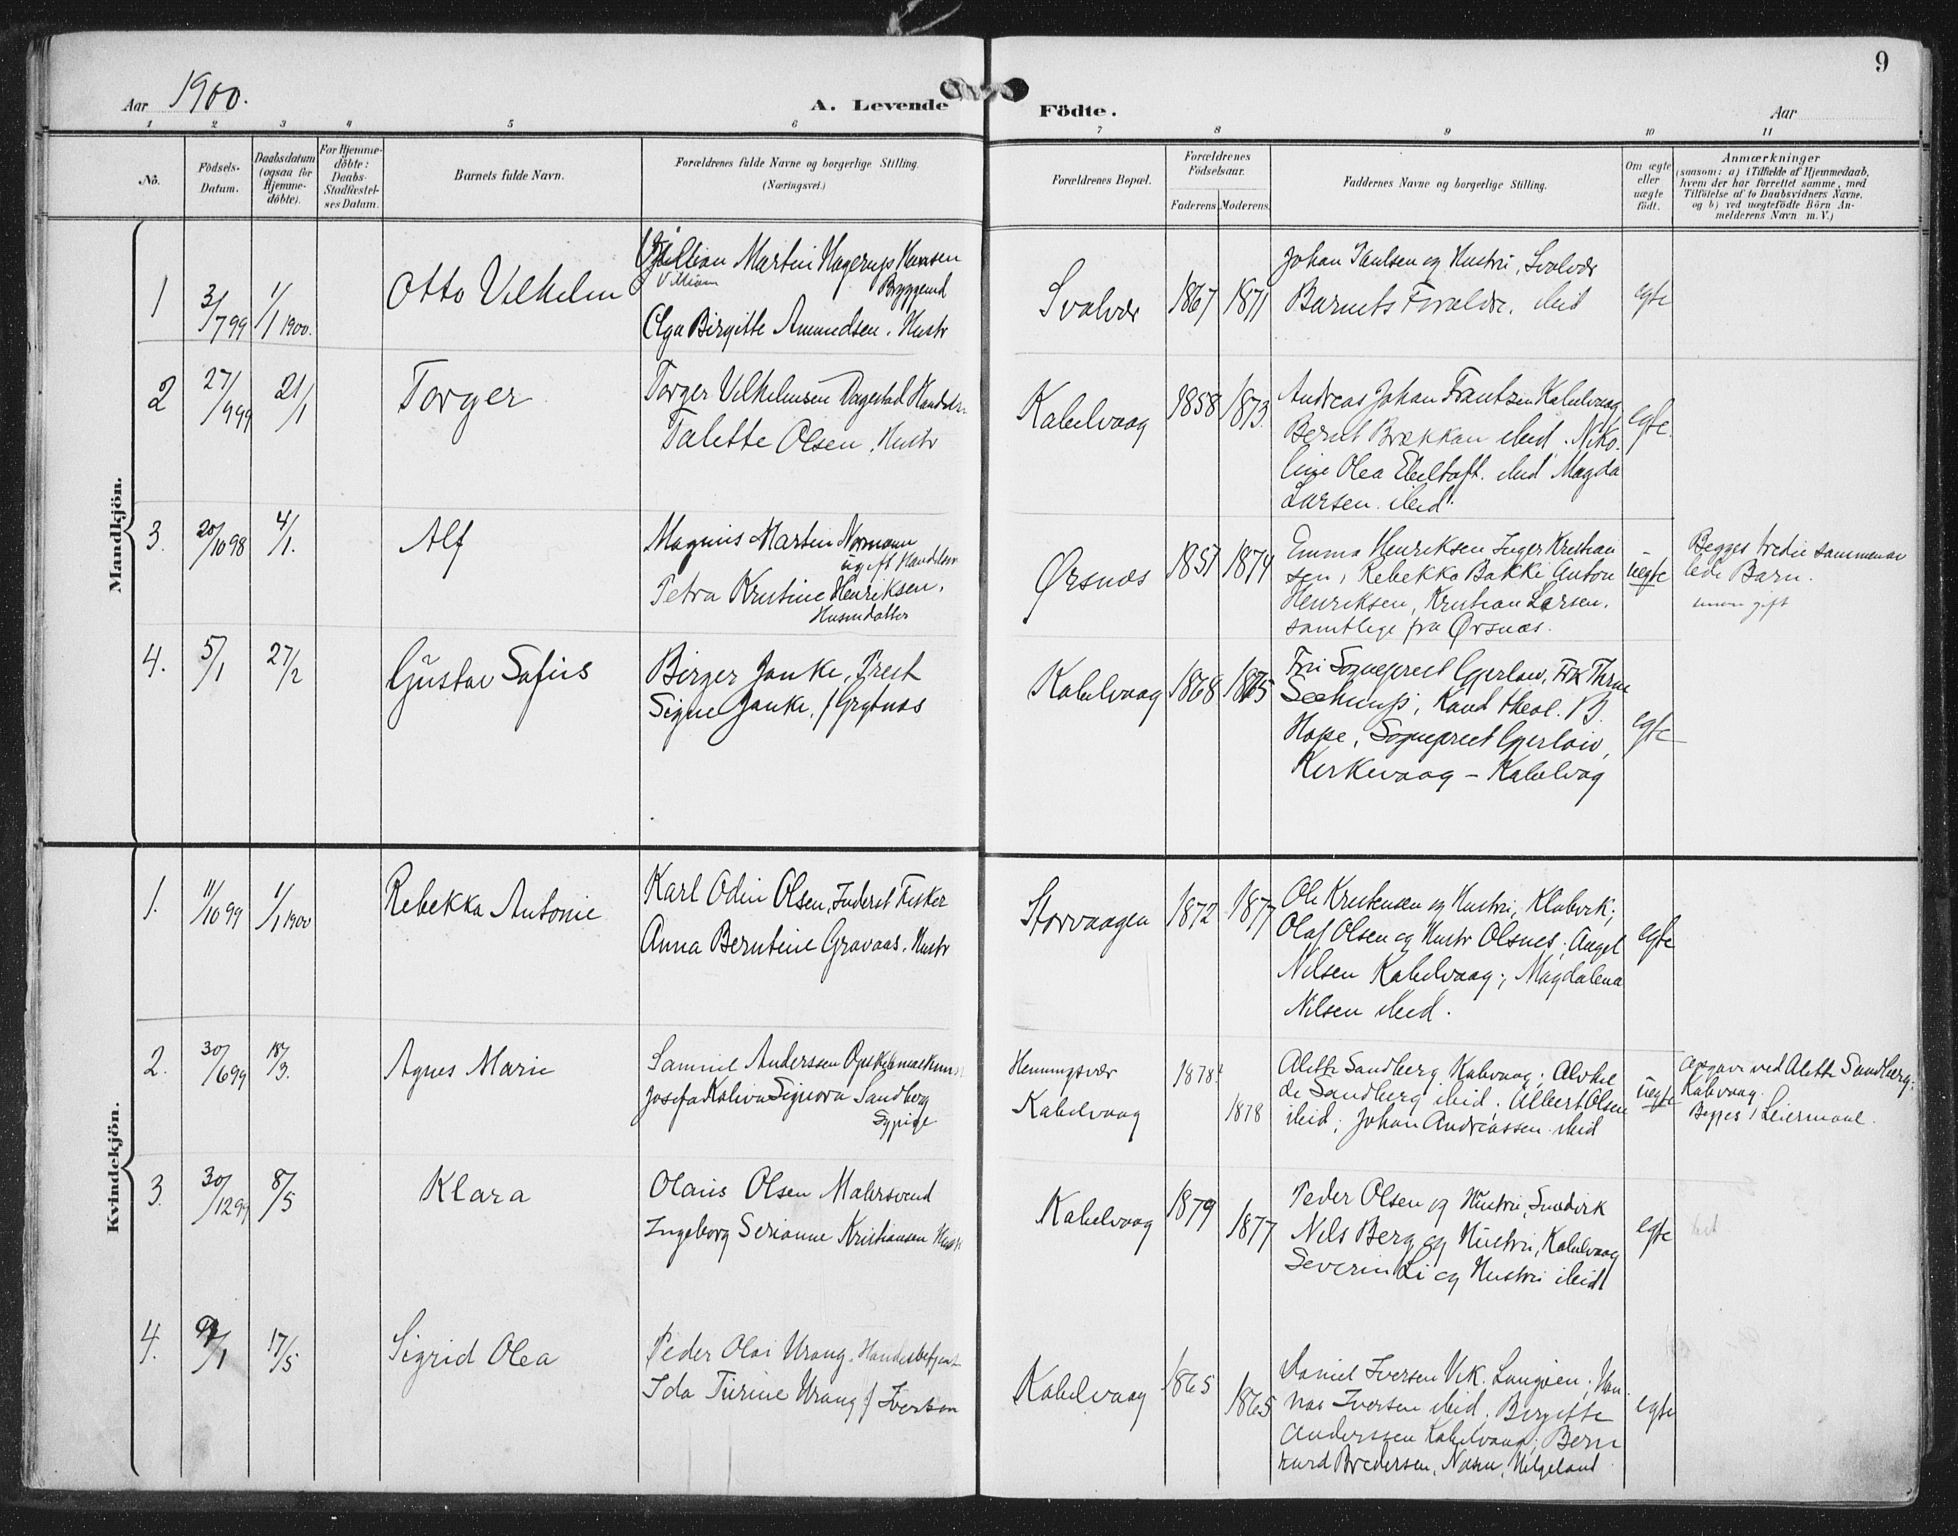 9
Aar 1900.
A. Levende
Födte.
Aar
1 2 3 4 5 6 7 8 9 10 11
No.
Födsels-
Datum.
Daabsdatum
(ogsaa for
Hjemme-
döbte).
For Hjemme-
döbte:
Daabs-
Stadfæstel-
ses Datum.
Barnets fulde Navn.
Forældrenes fulde Navne og borgerlige Stilling.
(Næringsvei.)
Forældrenes Bopæl.
Forældrenes
Födselsaar.
Faderens Moderens
Faddernes Navne og borgerlige Stilling.
Om ægte
eller
uægte
födt.
Anmærkninger
(saasom: a) i Tilfælde af Hjemmedaab,
hvem der har forrettet samme, med
Tilföielse af to Daabsvidners Navne,
og b) ved uægtefödte Börn An-
melderens Navn m. V.)
Mandkjön.
1
3/7 99
1/1 1900.
Otto Vilhelm
Martin Hagerup Hansen
Villiam
Olga Birgitte Amundsen. Hustr
Svolvær
1867
1871
Johan Paulsen og Hustru, Svolvær
Barnets Forældre. ibid
egte
2
27/9 99
21/1
Torger
Torger Vilhelmsen Dagestad
Talette Olsen. Hustr
Kabelvaag
1858
1873.
Andreas Johan Frantzen Kabelvaag
Bernt Brækkan ibid. Niko-
line Olea Ebeltoft. ibid Magda
Larsen. ibid.
egte.
3.
20/10 98
4/1.
Alf
Magnus Martin Normann
ugift Handelsm
Petra Kristine Henriksen.
Husmdatter
Ørsnæs
1851
1874
Emma Henriksen Inger Kristian
sen, Rebekka Bakki Anton
Henriksen, Kristian Larsen.
samtlige fra Ørsnæs.
uegte
Begges tredie sammenav
lede Barn.
gift
4.
5/1
27/2
Gustav Sofus
Birger Janke, Prest
Signe Janke, f Grytnæs
Kabelvaag
1868
1875
Fru Sogneprest Gjerløw, Frk Thrine
Kand theol. B.
Hope, Sogneprest Gjerløw,
Kirkevaag – Kabelvag
egte
Kvindekjön.
1.
11/10 99
1/1 1900
Rebekka Antonie
Karl Odin Olsen, Inderst Fisker
Anna Berntine Gravaas. Hustr
Storvaagen
1872
1877
Ole Kristensen og Hustru, Klabvik;
Olaf Olsen og Hustr Olsnes; Angel
Nilsen Kabelvaag; Magdalena
Nilsen ibid.
egte
2.
30/6 99
18/3.
Agnes Marie
Samuel Anderssen
Josefa Kaliva Signora Sandberg
Sypige
Henningsvær
Kabelvaag
1878
1878
Alette Sandberg Kabvaag; Alvhil
de Sandberg ibid; Albert Olsen
ibid; Johan Andreassen ibid
uegte
Opgave ved Alette Sandberg;
Kabvaag.
Begges 1 Leiermaal.
3.
30/12 99
8/5
Klara
Olaus Olsen Malersvend
Ingeborg Serianne Kristiansen Hustr
Kabelvaag
1879
1877
Peder Olsen og Hustru,
Nils Berg og Hustru, Kabelvaag
Severin Li og Hustru ibid
egte
4.
9/1
17/5
Sigrid Olea
Peder Olai Urang. Handelsbetjent
Ida Turine Urang f Iversen
Kabelvaag
1865
1865
Daniel Iversen Vik. ; Han
nas Iversen ibid; Birgitte
Anderssen Kabelvaag; Bern
hard Bredersen, Næsna, Helgeland
egte